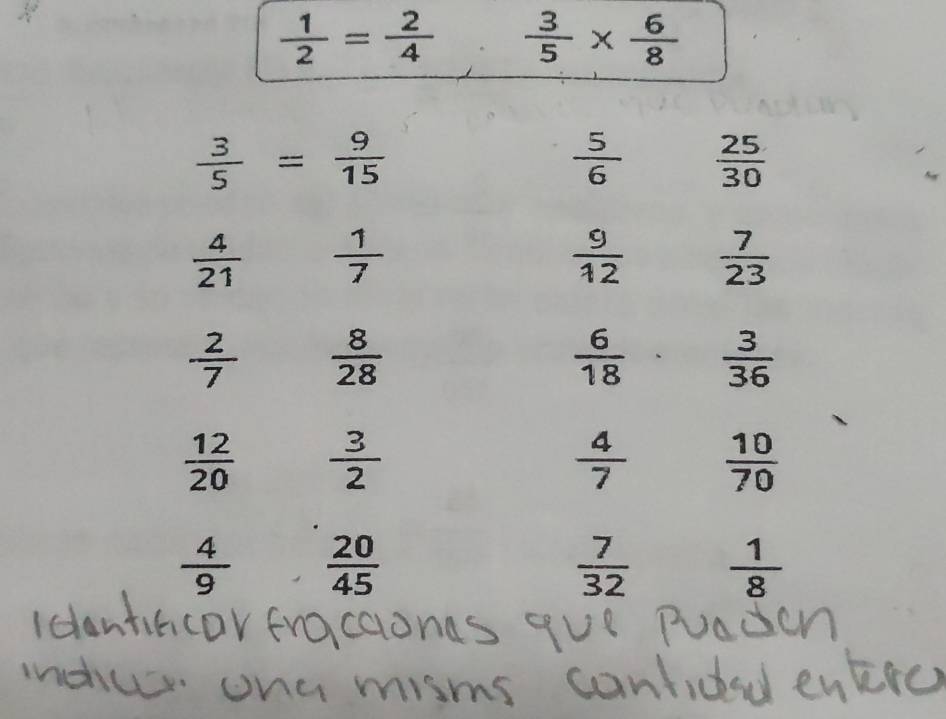 1/2 = 2/4 3/5 × 6/8
3/5 = 9/15 5/6 25/30
4/21 1/7 9/12 7/23
2/7 8/28 6/18 3/36
12/20 3/2 4/7 10/70
4/9 20/45 7/32 1/8
Identificar fracciones que pueden
indicar una misms cantidad entera